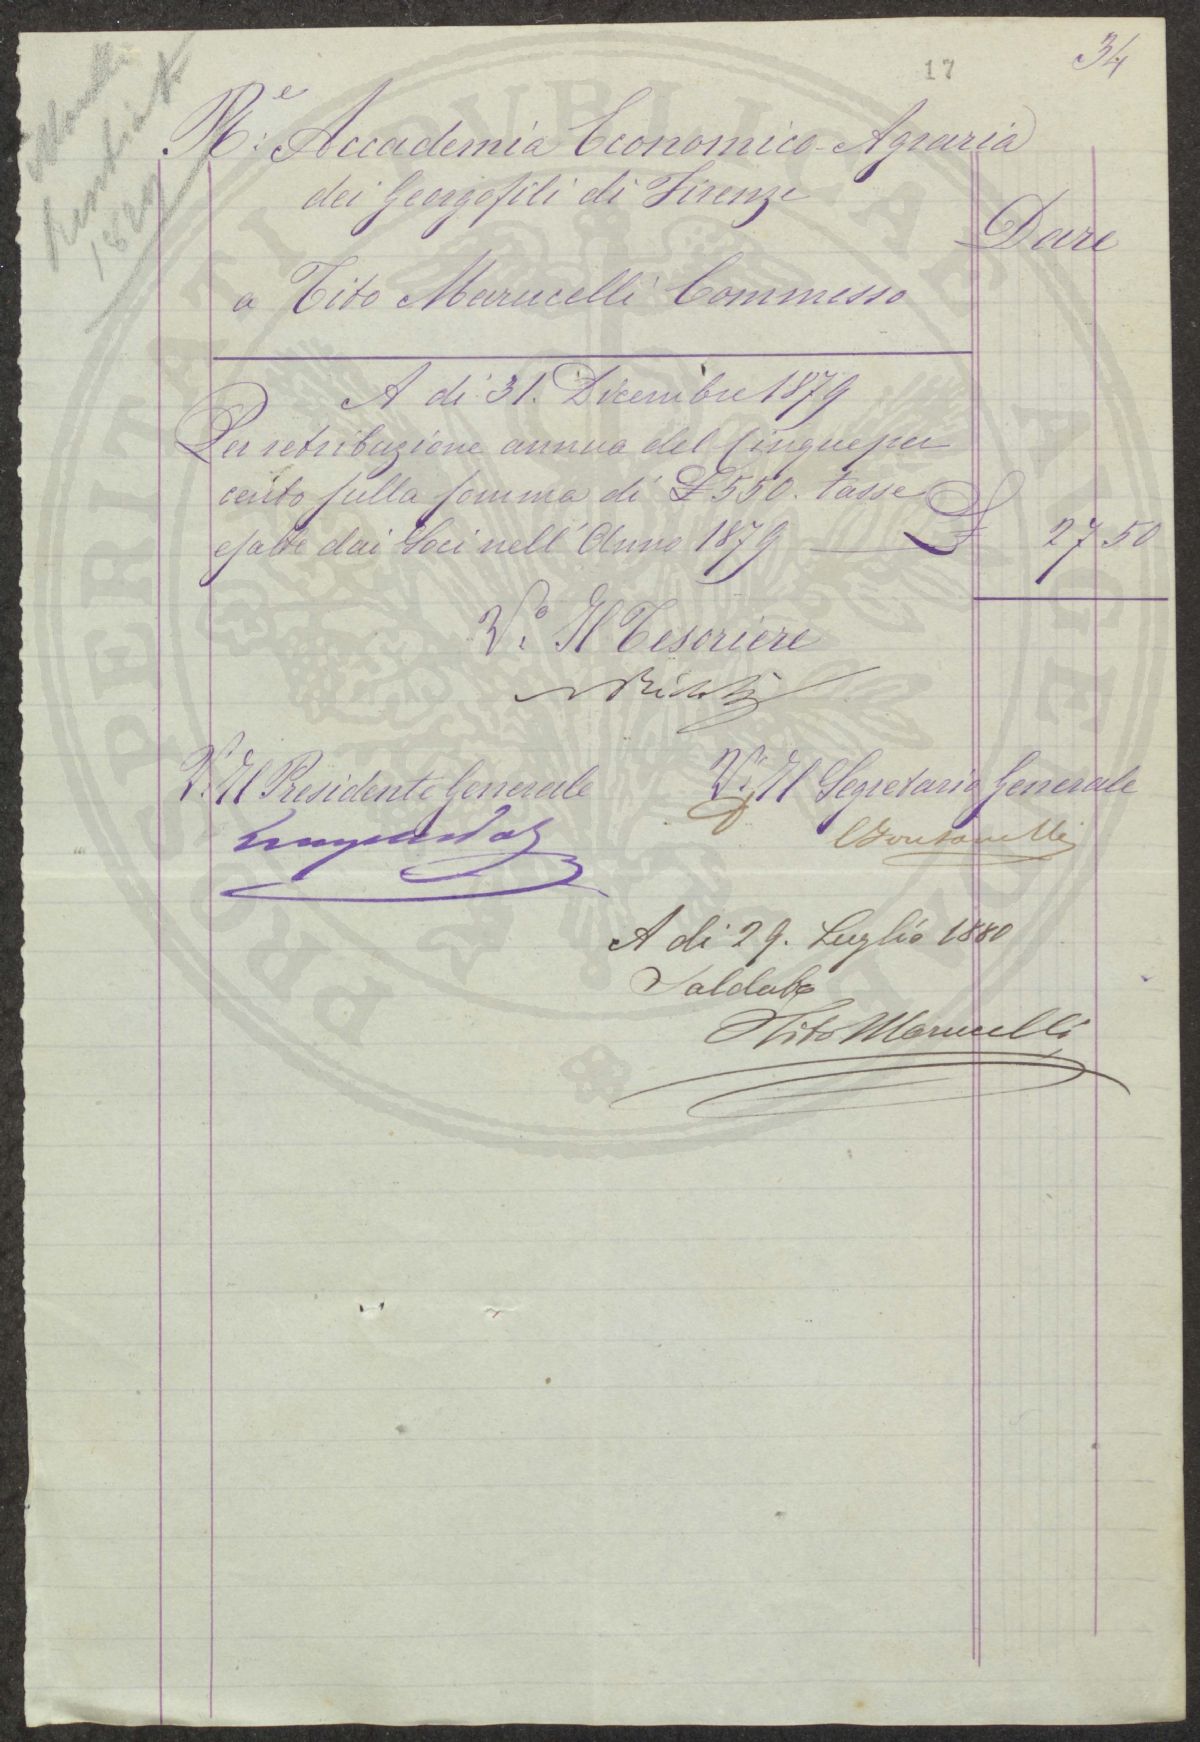 34
17
R.e Accademia Economico-Agraria
dei Georgofili di Firenze
Dare
a Tito Marucelli Commesso
A di 31. Dicembre 1879
Per retribuzione annua del Cinque per
cento sulla somma di £ 550. tasse
esatte dai Soci nell' Anno 1879 £ 27 50
V.o Il Tesoriere
V.o Il Presidente Generale
V.o Il Segretario Generale
C Fontanelli
A di 29. Luglio 1880
Saldato
Tito Marucelli
PROSPERITATI PUBLICAE AUGENDAE